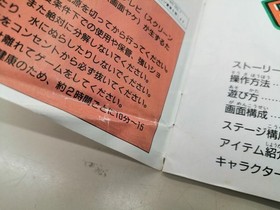 源を切ってから行ってください。
テレビ(スクリーン
画面ヤケ)が生ずるた
な条件下での使用や保管、強いショ
また絶対に分解しないでください。
り、水にぬらしたりしないでください。
をコンセントから必ず抜いてください。
離れてゲームをしてください。
健康のため、約2時間ごとに10分〜15
ストーリー
操作方法
遊び方
画面構成
ステージ構成
アイテム紹
キャラクター